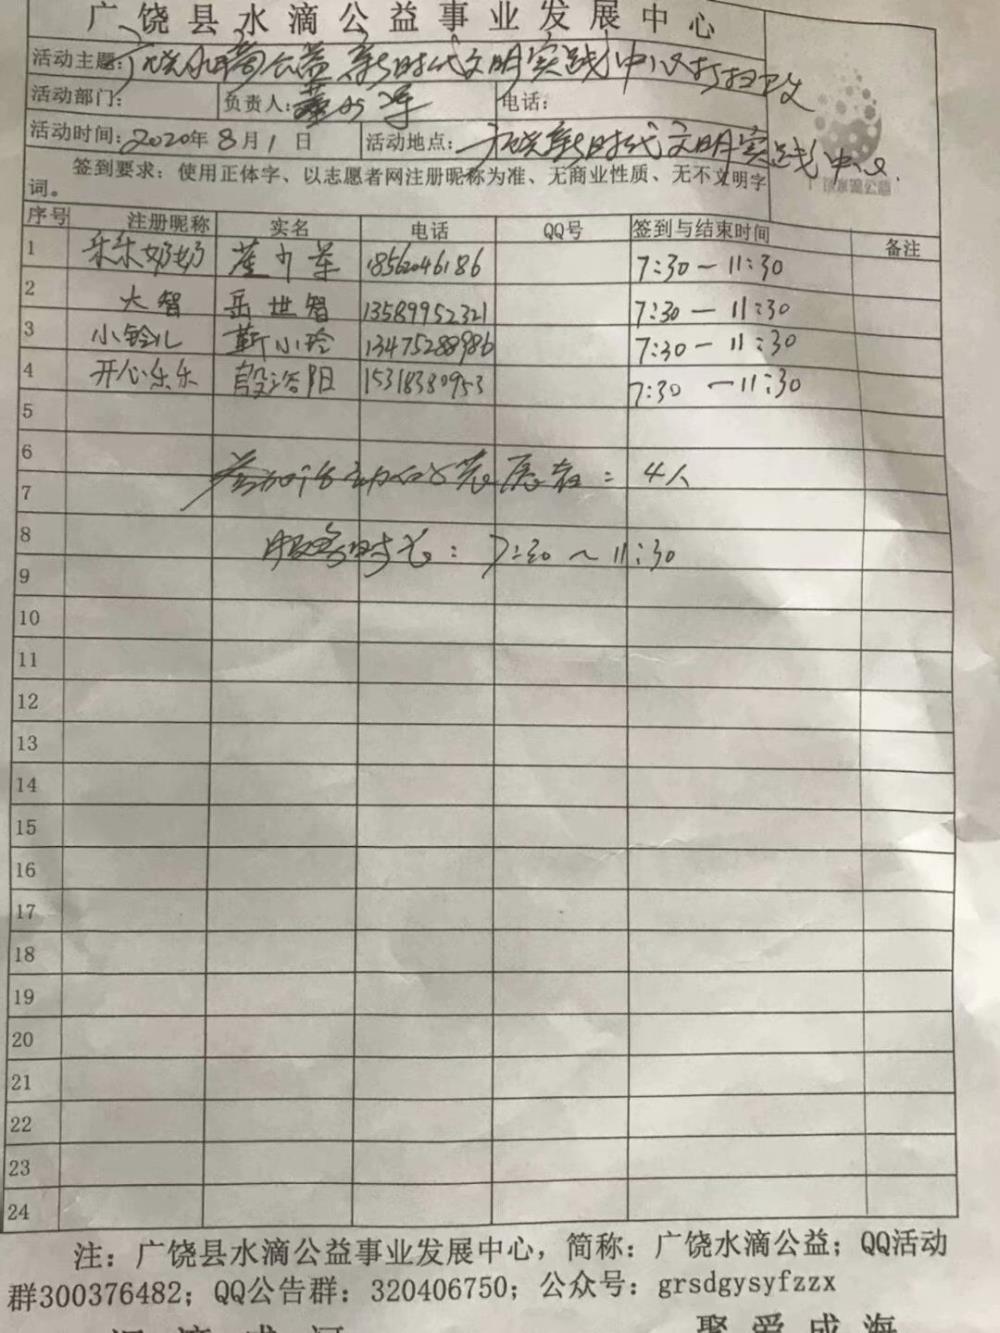 广饶县水滴公益事业发展中心
活动主题：广饶水滴公益新时代文明实践中心打扫卫生
活动部门： 负责人： 电话：
活动时间：2020年8月1日 活动地点：广饶新时代文明实践中心.
签到要求：使用正体字、以志愿者网注册昵称为准、无商业性质、无不文明字
词。
广饶水滴公益
序号 注册昵称 实名 电话 QQ号 签到与结束时间 备注
1 乐乐奶奶 18562046186 7:30－11:30
2 大智 岳世智 13589952321 7:30－11:30
3 小铃儿 靳小玲 13475288986 7:30－11:30
4 开心乐乐 段洛阳 15318380953 7:30－11:30
5
6
参加活动 4人
7
8
服务时长：7:30～11:30
9
10
11
12
13
14
15
16
17
18
19
20
21
22
23
24
注：广饶县水滴公益事业发展中心，简称：广饶水滴公益；QQ活动
群300376482；QQ公告群：320406750；公众号：grsdgysyfzzx
聚爱成海